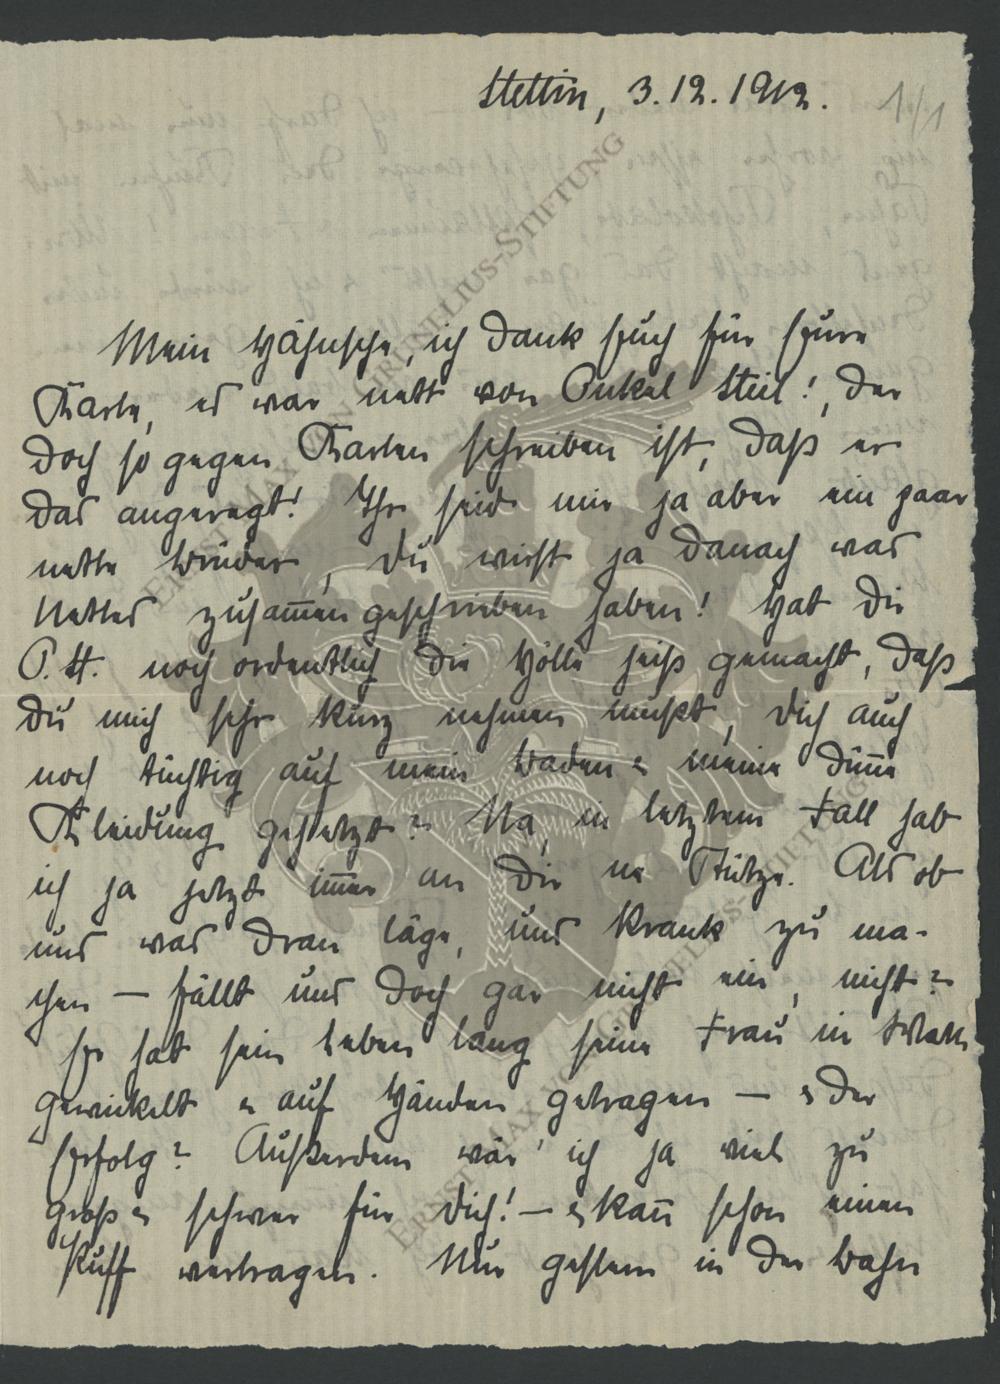 Stettin, 3.12.1912. 1./1
Mein Hähnsche, ich dank Euch für Eure
Karte, es war nett von Onkel Steil!, der
doch so gegen Karten schreiben ist, daß er
das angeregt! Ihr seid mir ja aber ein paar
nette Brüder, Du wirst ja danach was
Nettes zusam̅engeschrieben haben! Hat die
P. H. noch ordentlich die Hölle heiß gemacht, daß
Du mich sehr kurz nehmen müßt, Dich auch
noch tüchtig auf mein Baden & meine dün̅e
Kleidung gehetzt? Na, in letztem Fall hab
ich ja jetzt im̅er an Dir ne Stütze. Als ob
uns was dran läge, uns krank zu ma-
chen — fällt uns doch gar nicht ein, nicht?
Er hat sein Leben lang seine Frau in Watte
gewickelt & auf Händen getragen — & der
Erfolg? Außerdem wär' ich ja viel zu
groß & schwer für Dich! — & kan̅ schon einen
Puff vertragen. Nur gestern in der Bahn
ERNST-MAX VON GRUNELIUS-STIFTUNG
ERNST-MAX VON GRUNELIUS-STIFTUNG